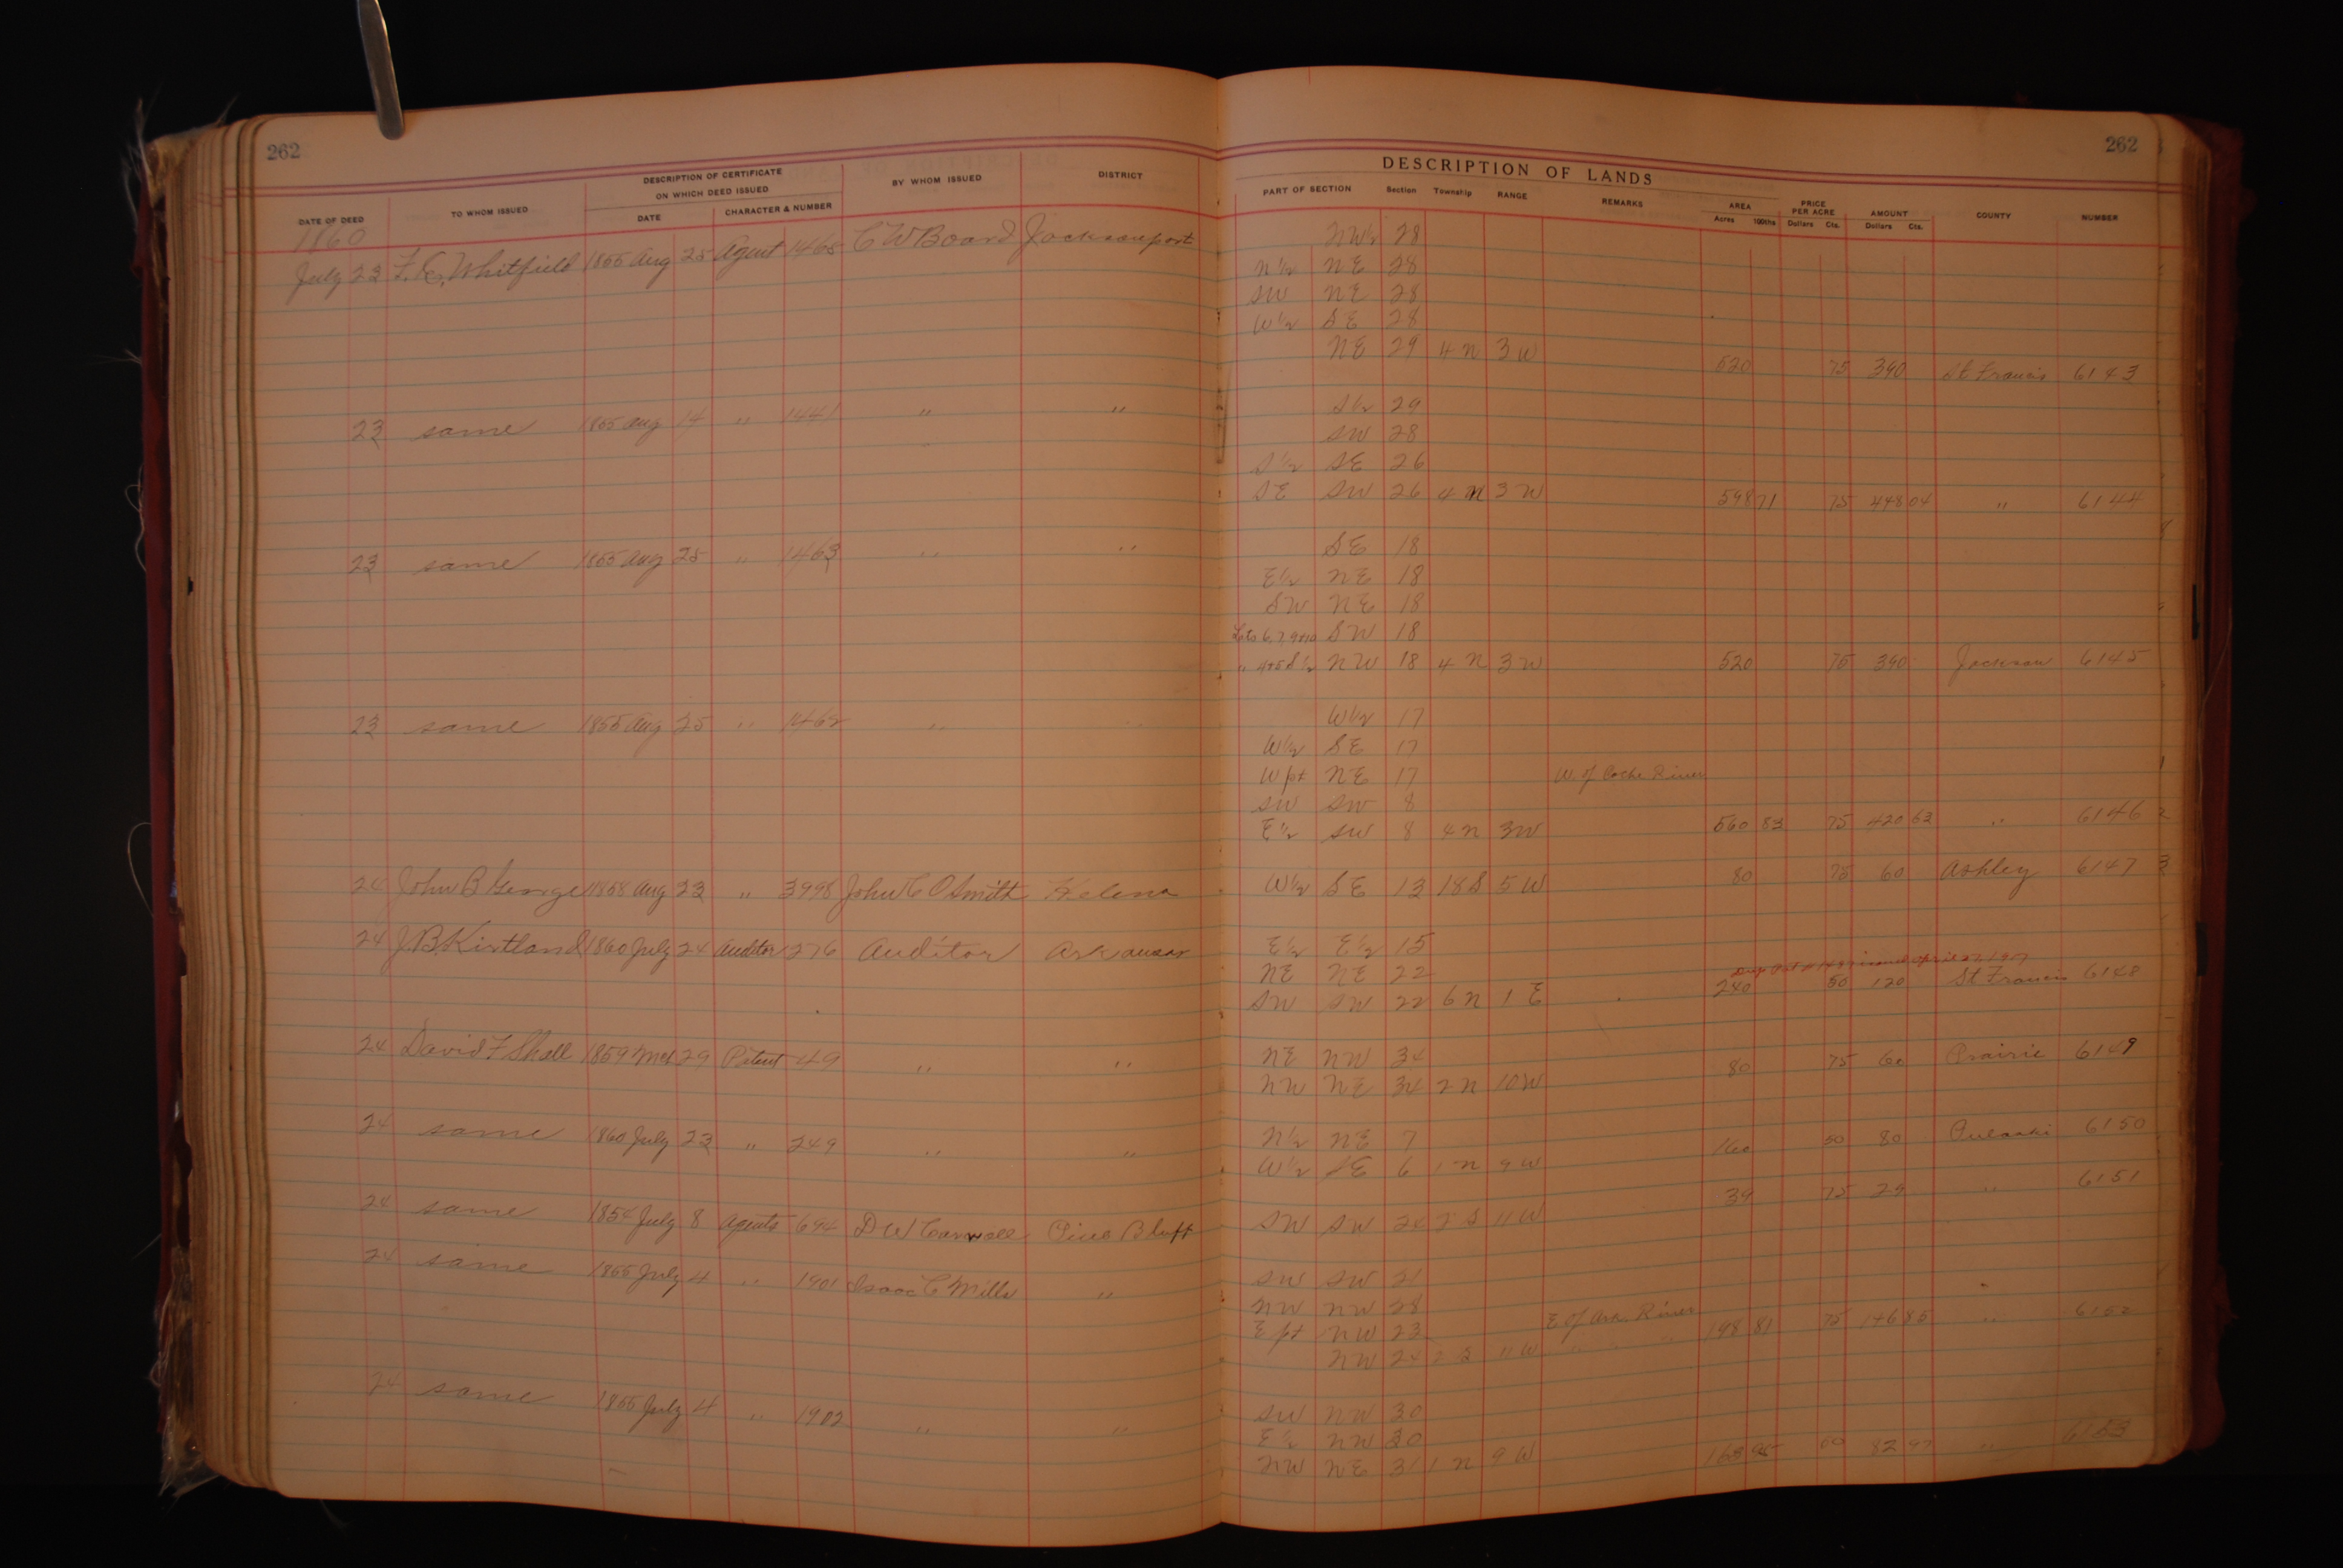 262
DATE OF DEED TO WHOM ISSUED DESCRIPTION OF CERTIFICATE ON WHICH DEED ISSUED DATE CHARACTER & NUMBER BY WHOM ISSUED DISTRICT
1860
July 23 Whitfield 1855 Aug 25 Agent 1465 C W Board Jacksonport
23 same 1855 Aug 14 " 1441 " "
23 same 1855 Aug 25 " 1463 " "
23 same 1855 Aug 25 " 1462 " "
24 John B George 1858 Aug 23 " 3998 John C O Smith Helena
24 J.B. Kirtland 1860 July 24 Auditor 276 Auditor Arkansas
24 David F Shall 1859 Mch 29 Patent 49 " "
24 same 1860 July 23 " 249 " "
24 same 1854 July 8 Agents 694 D W Pine Bluff
24 same 1855 July 4 " 1901 Isaac C Mills "
24 same 1855 July 4 " 1902 " "
262
DESCRIPTION OF LANDS
PART OF SECTION Section Township RANGE REMARKS AREA Acres 100ths PRICE PER ACRE Dollars Cts. AMOUNT Dollars Cts. COUNTY NUMBER
NW¼ 28
N½ NE 28
SW NE 28
W½ SE 28
NE 29 4 N 3 W 520 75 390 St Francis 6143
S½ 29
SW 28
S½ SE 26
SE SW 26 4 N 3 W 598 71 75 448 04 " 6144
SE 18
E½ NE 18
SW NE 18
Lots 6,7,9+10 SW 18
" 4+5 S½ NW 18 4 N 3 W 520 75 390 Jackson 6145
W½ 17
W½ SE 17
W pt NE 17 W. of Cache River
SW SW 8
E½ SW 8 4 N 3 W 560 83 75 420 63 " 6146
W½ SE 13 18 S 5 W 80 75 60 Ashley 6147
E½ E½ 15
NE NE 22
SW SW 22 6 N 1 E 240 50 120 St Francis 6148
NE NW 34
NW NE 34 2 N 10 W 80 75 60 Prairie 6149
N½ NE 7
W½ SE 6 1 N 9 W 160 50 80 Pulaski 6150
SW SW 24 2 S 11 W 39 75 29 " 6151
SW SW 21
NW NW 28
E pt NW 23 E of Ark. River
NW 24 2 S 11 W " " " 198 81 75 146 85 " 6152
SW NW 30
E½ NW 30
NW NE 31 1 N 9 W 163 95 50 82 97 " 6153